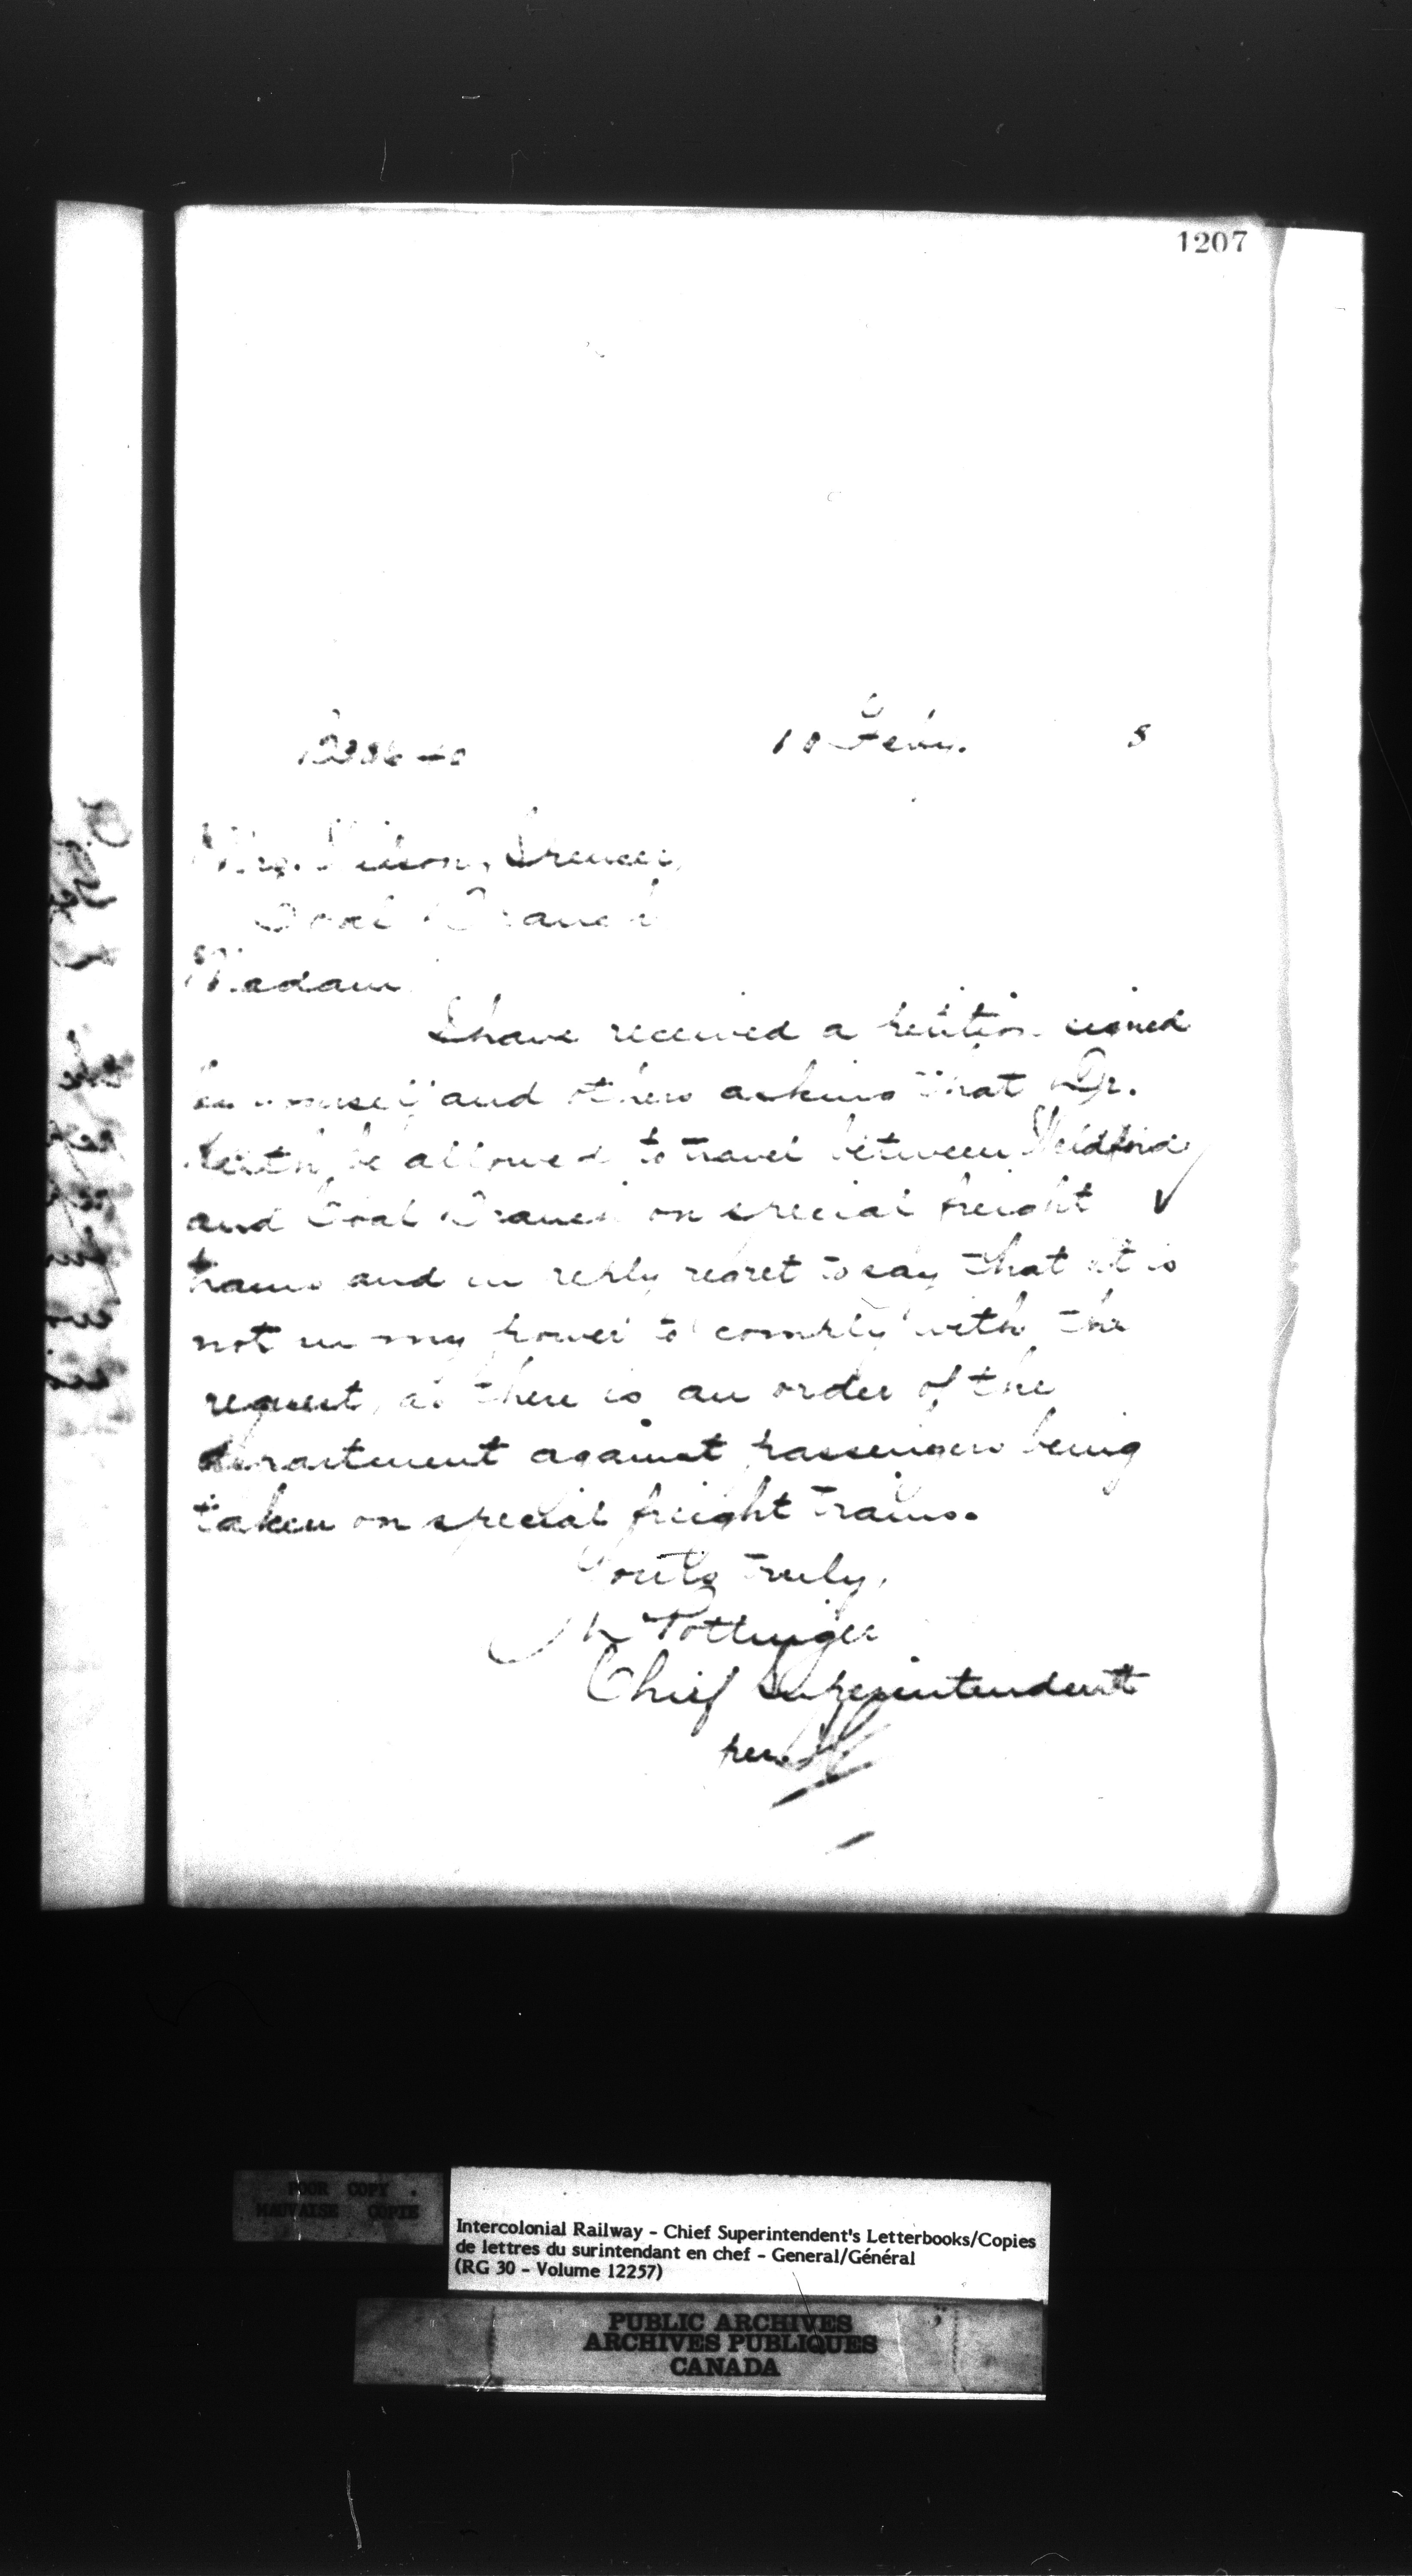 1207
10 Feby. 5
Mrs. Wilson, Spencer,
Coal Branch
Madam
I have received a petition signed
by yourself and others asking that Dr.
Keith be allowed to travel between Weldford
and Coal Branch on special freight
trains and in reply regret to say that it is
not in my power to comply with the
request, as there is an order of the
department against passengers being
taken on special freight trains.
Yours truly,
Pottinger
Chief Superintendent
per
POOR COPY
MAUVAISE COPIE
Intercolonial Railway - Chief Superintendent's Letterbooks/Copies
de lettres du surintendant en chef - General/Général
(RG 30 - Volume 12257)
PUBLIC ARCHIVES
ARCHIVES PUBLIQUES
CANADA